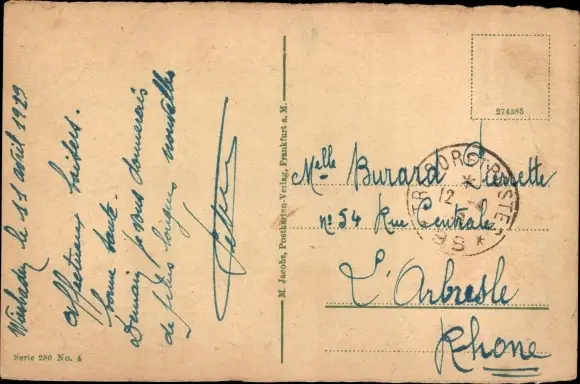 Wiesbaden le 11 avril 1923
affectueux baisers.
bonne santé.
Demain je vous donnerais
de plus longues nouvelles
Serie 280 No. 4
M. Jacobs, Postkarten-Verlag, Frankfurt a. M.
274385
TRESOR ET POSTES
12
98
Melle Burard Pierrette
n° 54 Rue Centrale
L'Arbresle
Rhone